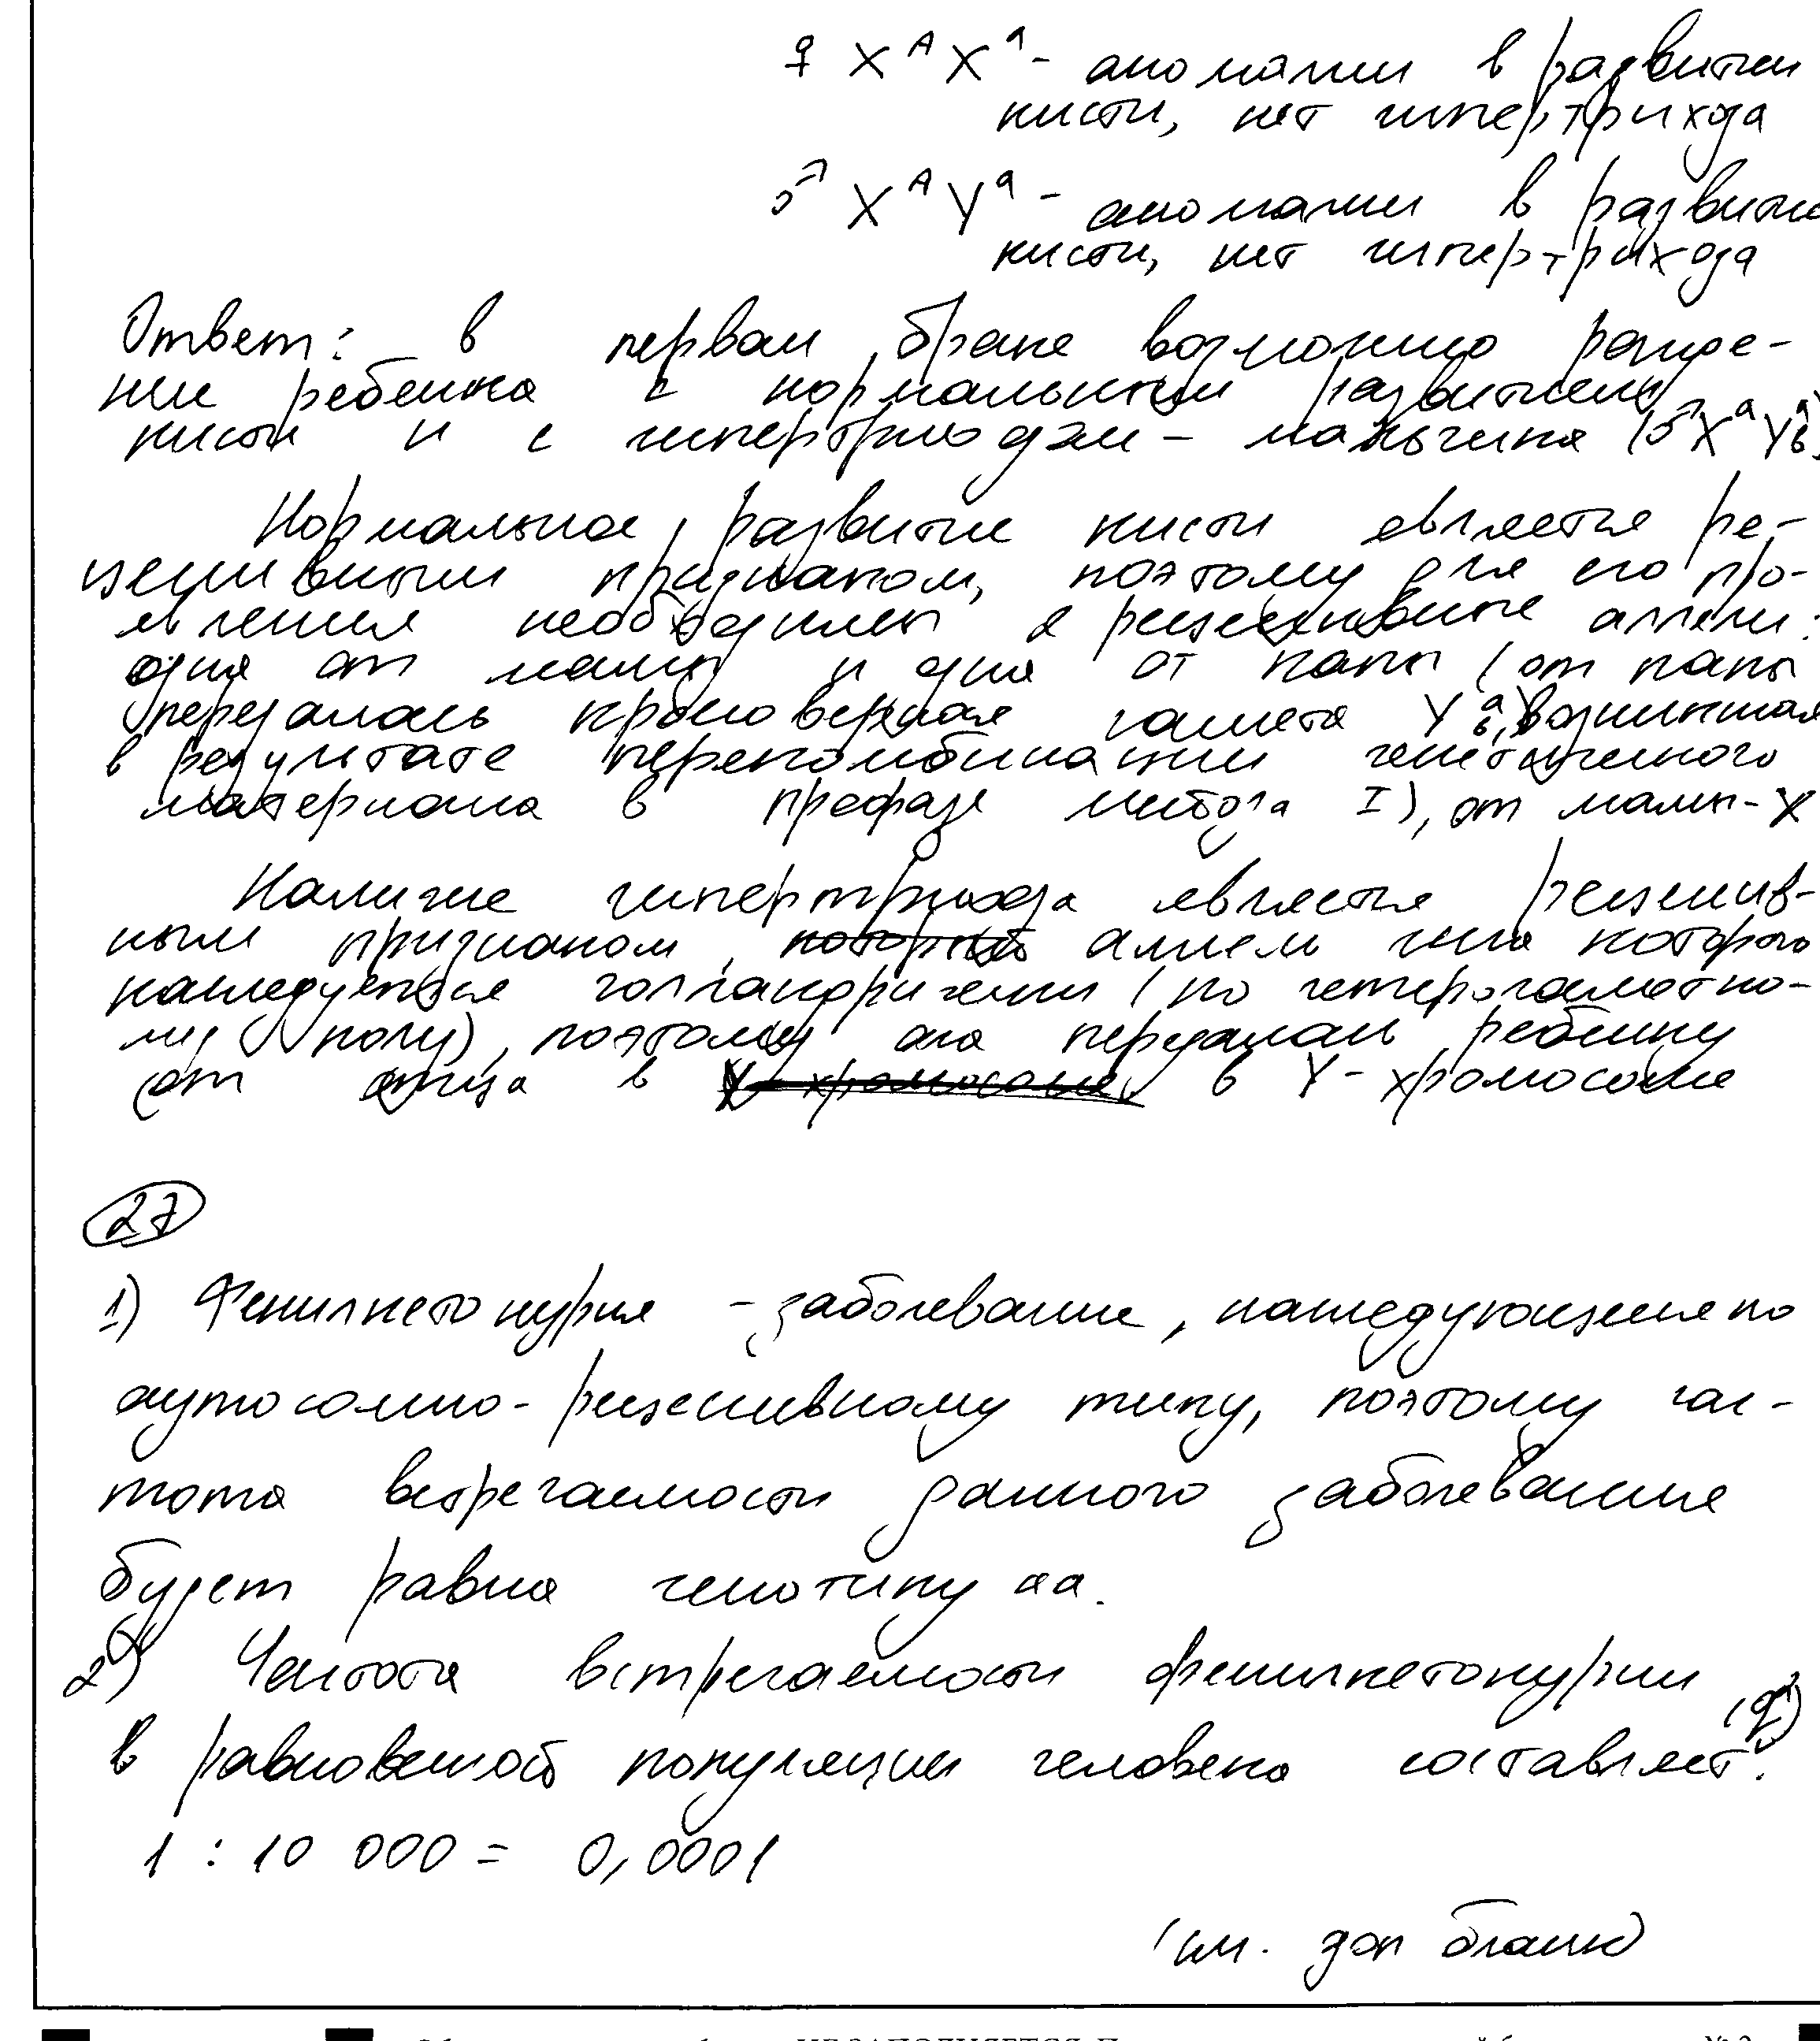 ♀ X^A X^a - аномалии в развитии
кисти, нет гипертрихоза
♂ X^A Y^a - аномалии в развитии
кисти, нет гипертрихоза
Ответ: в первом браке возможно рожде-
ние ребенка с нормальным развитием
кисти и с гипертрихозом - мальчика (♂X^a Y^a_b)
Нормальное развитие кисти является ре-
цессивным признаком, поэтому для его про-
явления необходимы 2 рецессивные аллели:
одна от мамы и одна от папы (от папы
передалась кроссоверная гамета Y^a_b, возникшая
в результате перекомбинации генетического
материала в профазе мейоза I), от мамы - X
Наличие гипертрихоза является рецессив-
ным признаком, который аллель гена которого
наследуется голландрически (по гетерогаметно-
му полу), поэтому она передалась ребенку
от отца в Y-хромосоме в Y-хромосоме
27
1) Фенилкетонурия - заболевание, наследующееся по
аутосомно-рецессивному типу, поэтому час-
тота встречаемости данного заболевания
будет равна генотипу aa.
2) Частота встречаемости фенилкетонурии
в равновесной популяции человека составляет (q²):
1 : 10 000 = 0,0001
(см. доп бланк)
НЕ ЗАПОЛНЯЕТСЯ